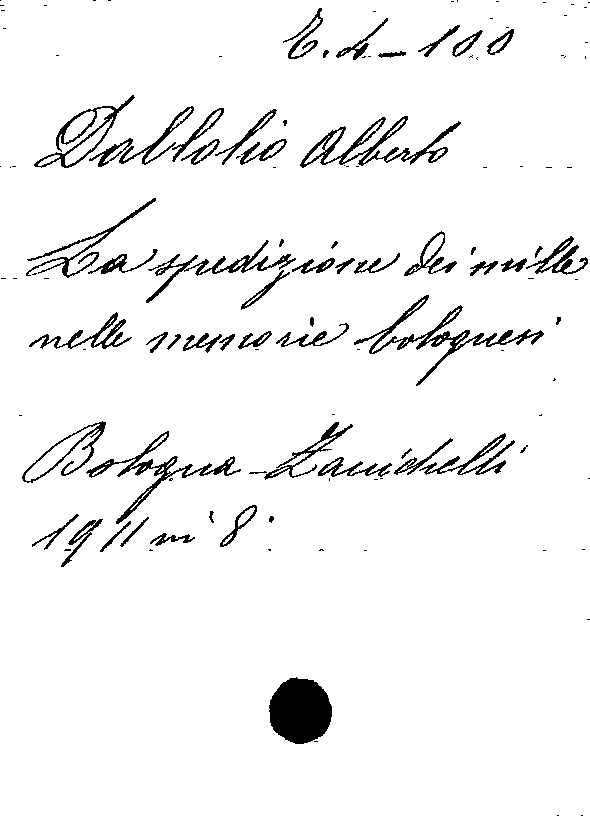 E.4-100
Dallolio Alberto
La spedizione dei mille
nelle memorie bolognesi
Bologna - Zanichelli
1911 in 8°